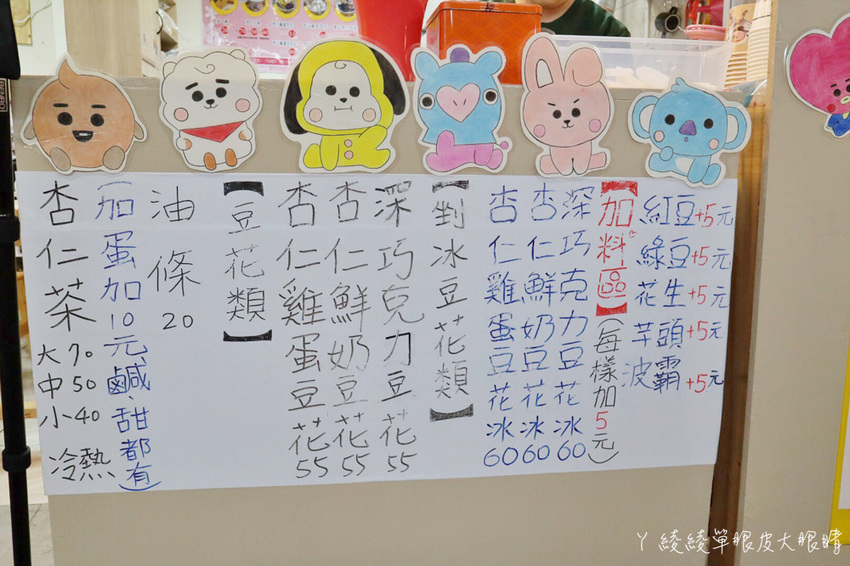 杏仁茶
大70
中50
小40
冷熱
(加蛋加10元、鹹、甜都有)
油條20
【豆花類】
杏仁雞蛋豆花55
杏仁鮮奶豆花55
深巧克力豆花55
【剉冰豆花類】
杏仁雞蛋豆花冰60
杏仁鮮奶豆花冰60
深巧克力豆花冰60
【加料區】(每樣加5元)
紅豆+5元
綠豆+5元
花生+5元
芋頭+5元
波霸+5元
ㄚ綾綾單眼皮大眼睛